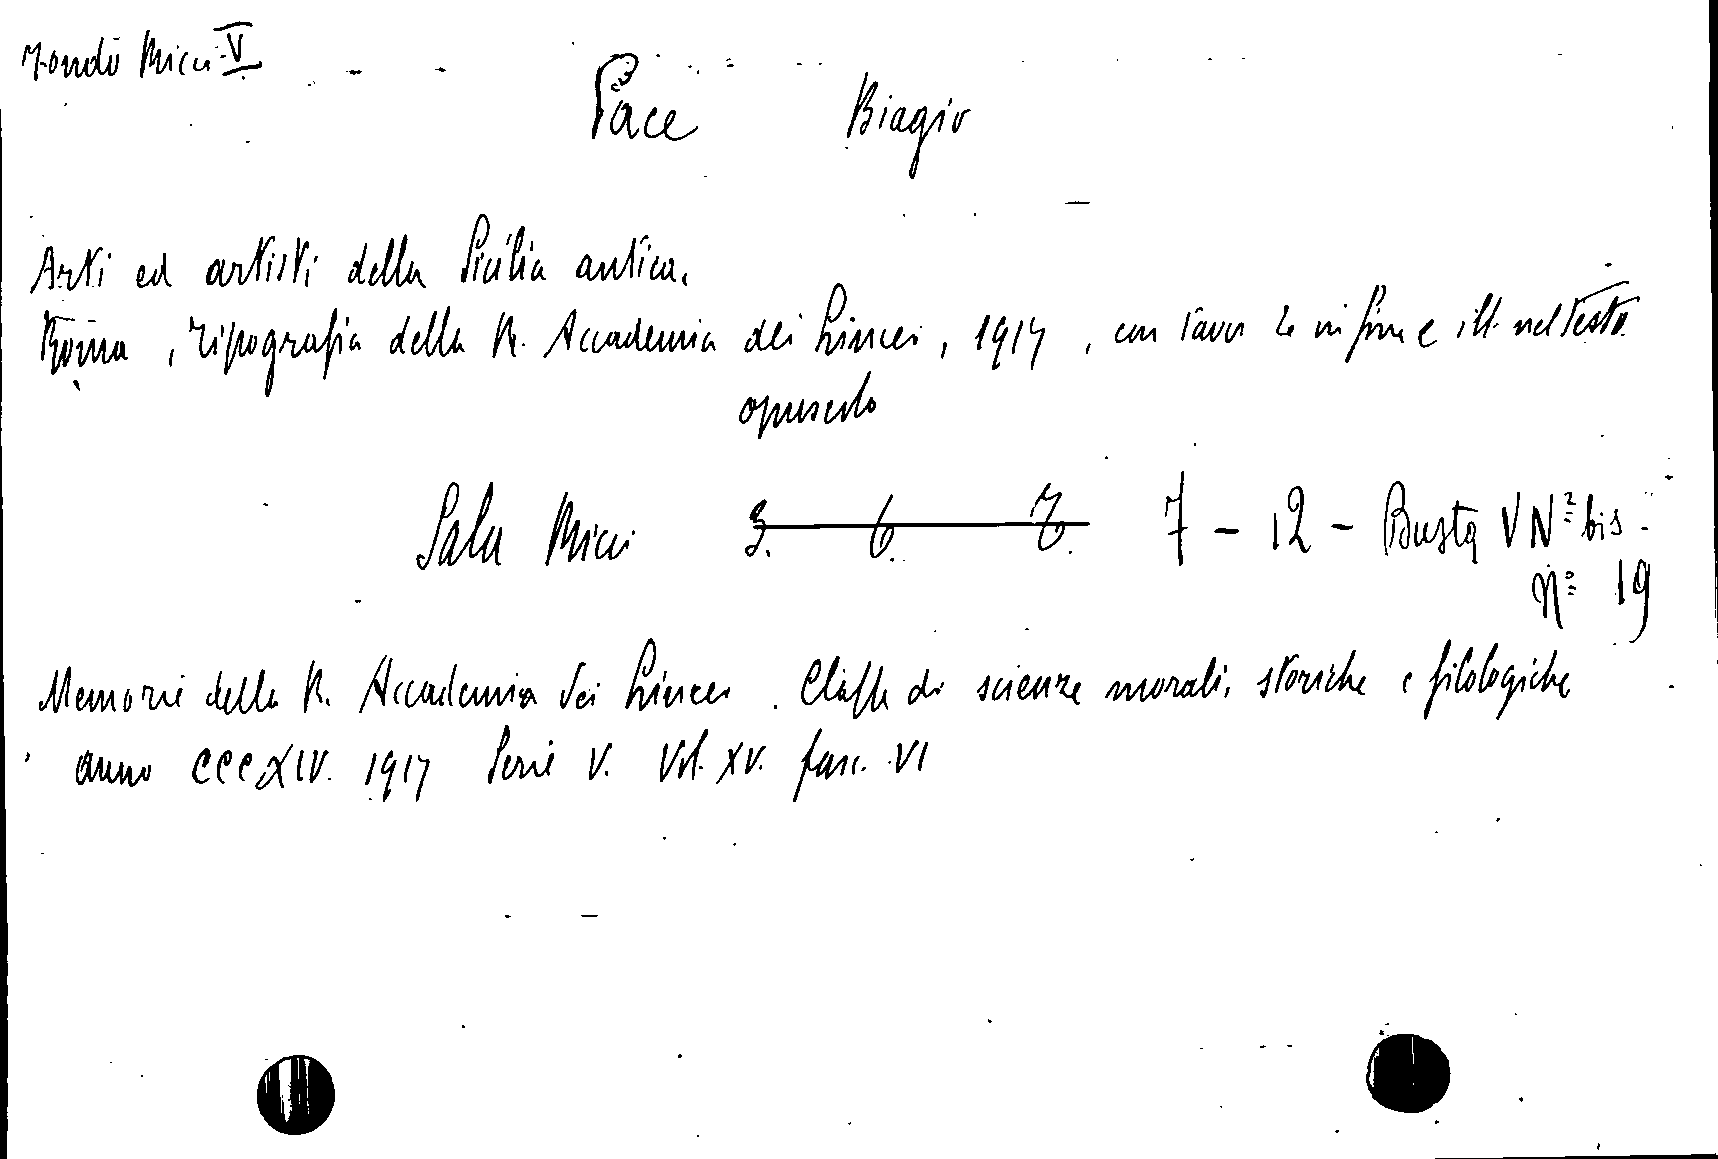 Fondo Ricci V
Pace Biagio
Arti ed artisti della Sicilia antica.
Roma, Tipografia della R. Accademia dei Lincei, 1917, con tavole in fine e ill. nel testo
opuscolo
Sala Ricci 3. 6. 7. 7 - 12 - Busta V Nº bis -
Nº 19
Memorie della R. Accademia dei Lincei. Classe di scienze morali, storiche e filologiche
anno CCCXIV. 1917 Serie V. Vol. XV. fasc. VI